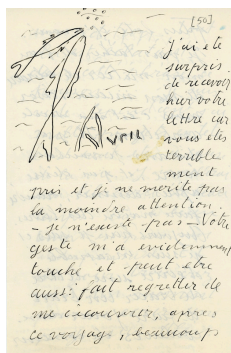 [50]
Avril
j'ai ete
surpris
de recevoir
hier votre
lettre car
vous etes
terrible
ment
pris et je ne merite pas
la moindre attention.
- je n'existe pas - Votre
geste m'a evidemment
touche et peut etre
aussi fait regretter de
me decouvrir, apres
ce voyage, beaucoup